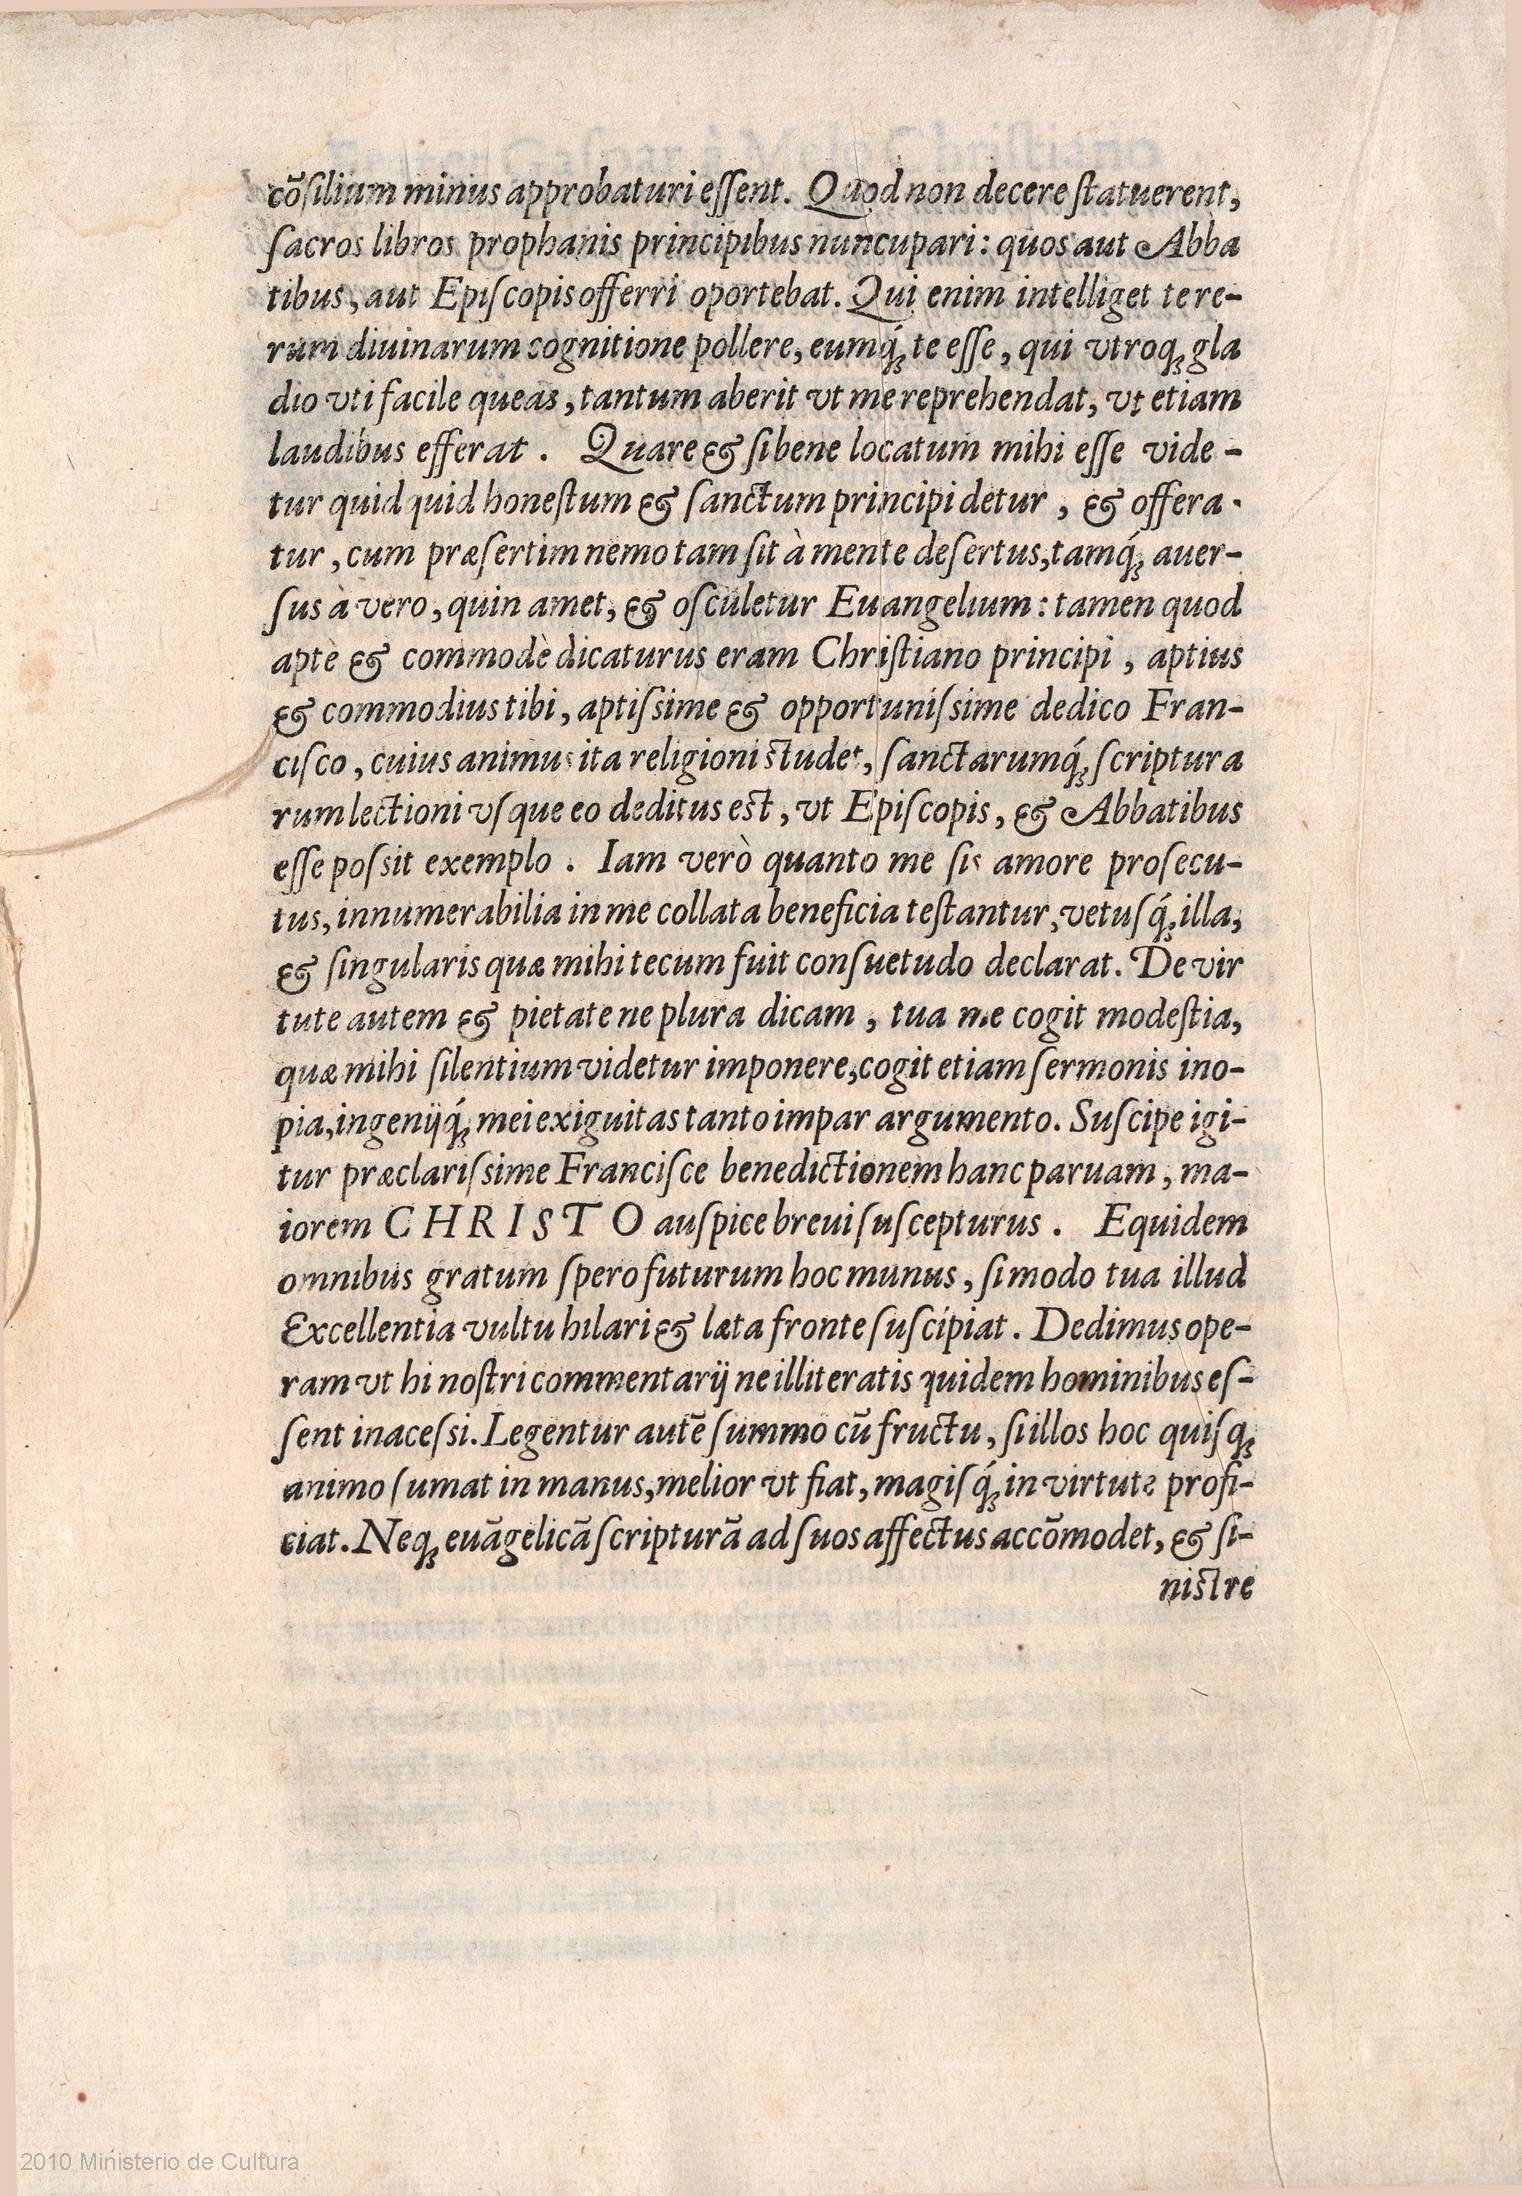 cõſilium minus approbaturi eſſent. Quod non decere ſtatuerent,
ſacros libros prophanis principibus nuncupari: quos aut Abba
tibus, aut Epiſcopis offerri oportebat. Qui enim intelliget te re-
rum diuinarum cognitione pollere, eumq́; te eſſe, qui vtroq; gla
dio vti facile queas, tantum aberit vt me reprehendat, vt etiam
laudibus efferat. Quare & ſi bene locatum mihi eſſe vide-
tur quidquid honeſtum & ſanctum principi detur, & offera-
tur, cum præſertim nemo tam ſit à mente deſertus, tamq́; auer-
ſus à vero, quin amet, & oſculetur Euangelium: tamen quod
aptè & commodè dicaturus eram Chriſtiano principi, aptius
& commodius tibi, aptiſsime & opportuniſsime dedico Fran-
ciſco, cuius animus ita religioni ſtudet, ſanctarumq́; ſcriptura
rum lectioni vſque eo deditus eſt, vt Epiſcopis, & Abbatibus
eſſe poſsit exemplo. Iam verò quanto me ſis amore proſecu-
tus, innumerabilia in me collata beneficia teſtantur, vetuſq́; illa,
& ſingularis quæ mihi tecum fuit conſuetudo declarat. De vir
tute autem & pietate ne plura dicam, tua me cogit modeſtia,
quæ mihi ſilentium videtur imponere, cogit etiam ſermonis ino-
pia, ingenijq́; mei exiguitas tanto impar argumento. Suſcipe igi-
tur præclariſsime Franciſce benedictionem hanc paruam, ma-
iorem CHRISTO auſpice breui ſuſcepturus. Equidem
omnibus gratum ſpero futurum hoc munus, ſi modo tua illud
Excellentia vultu hilari & læta fronte ſuſcipiat. Dedimus ope-
ram vt hi noſtri commentarij ne illiteratis quidem hominibus eſ-
ſent inaceſsi. Legentur autẽ ſummo cũ fructu, ſi illos hoc quiſq;
animo ſumat in manus, melior vt fiat, magiſq́; in virtute profi-
ciat. Neq; euãgelicã ſcripturã ad ſuos affectus accõmodet, & ſi-
niſtre
2010 Ministerio de Cultura